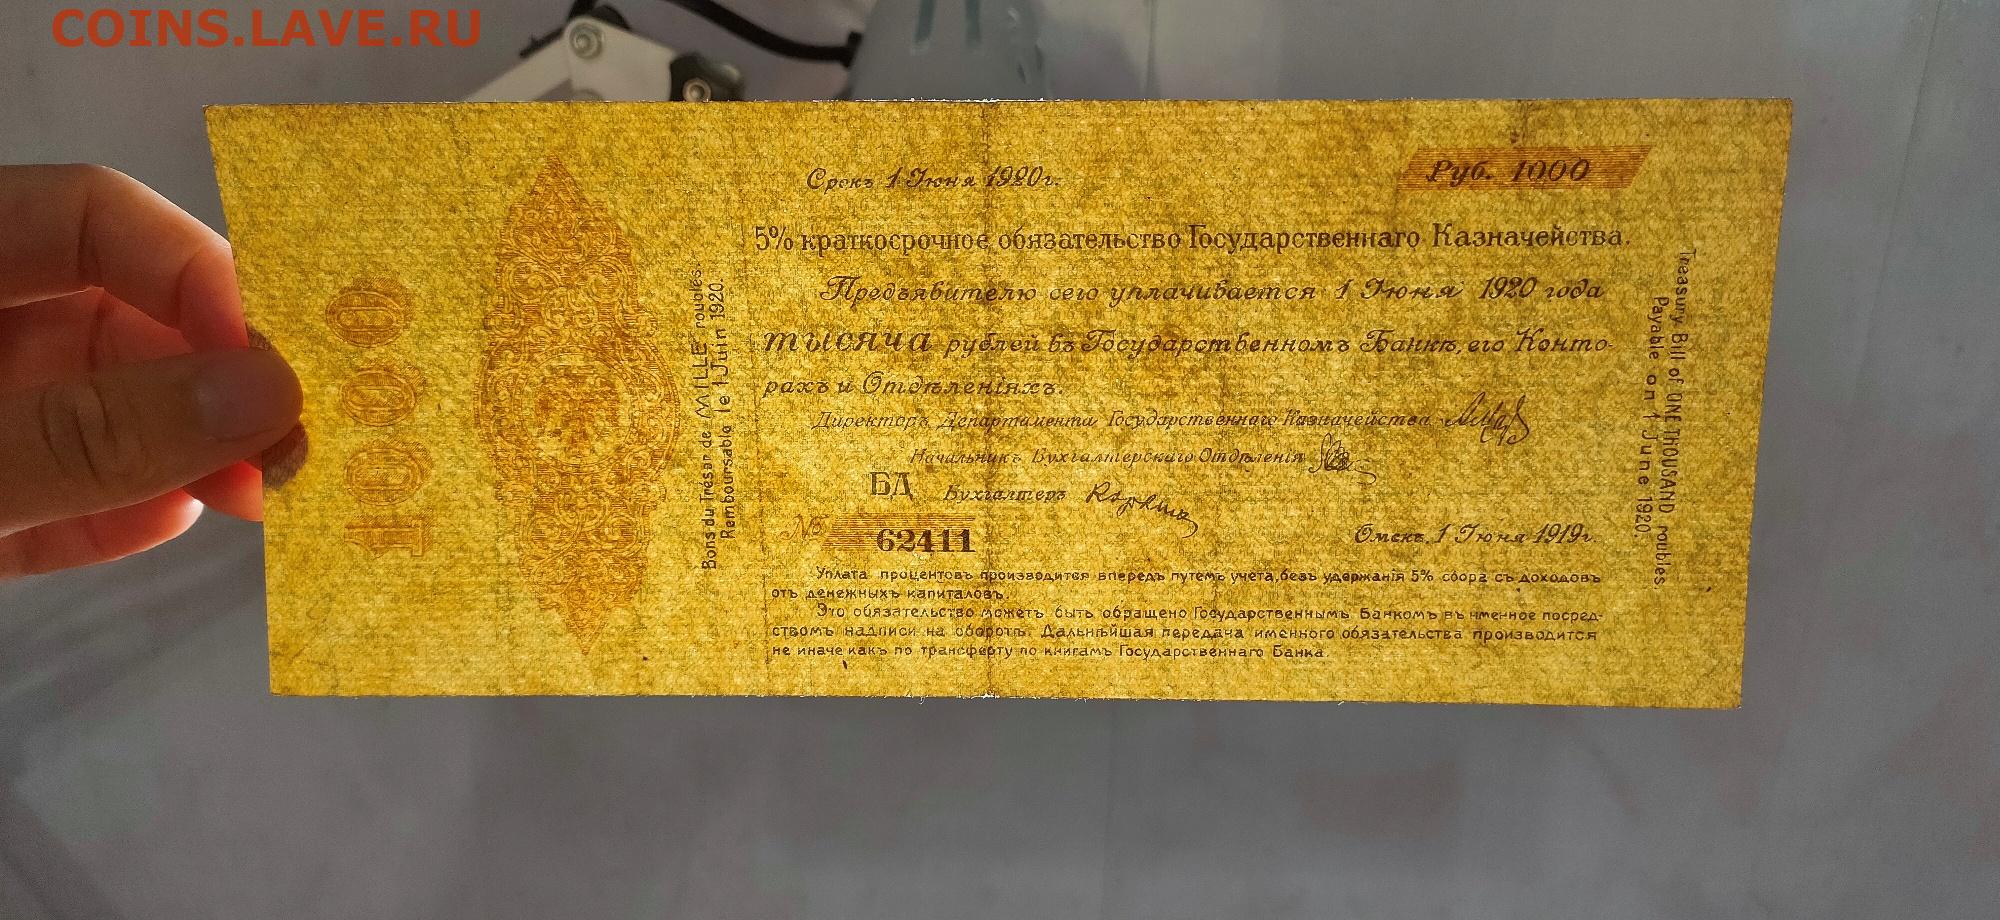 COINS.LAVE.RU
Срокъ 1 Июня 1920г.
Руб. 1000
5% краткосрочное обязательство Государственнаго Казначейства.
Предъявителю сего уплачивается 1 Июня 1920 года
тысяча рублей въ Государственномъ Банкѣ, его Конто-
рахъ и Отдѣленіяхъ.
Директоръ Департамента Государственнаго Казначейства
Начальникъ Бухгалтерскаго Отдѣленія
БД Бухгалтеръ
№ 62411
Омскъ, 1 Июня 1919г.
Уплата процентовъ производится впередъ путемъ учета, безъ удержанія 5% сбора съ доходовъ
отъ денежныхъ капиталовъ.
Это обязательство можетъ быть обращено Государственнымъ Банкомъ въ именное посред-
ствомъ надписи на оборотѣ. Дальнѣйшая передача именного обязательства производится
не иначе какъ по трансферту по книгамъ Государственнаго Банка.
1000
Bons du Trésor de MILLE roubles.
Remboursable le 1 Juin 1920.
Treasury Bill of ONE THOUSAND roubles.
Payable on 1 June 1920.